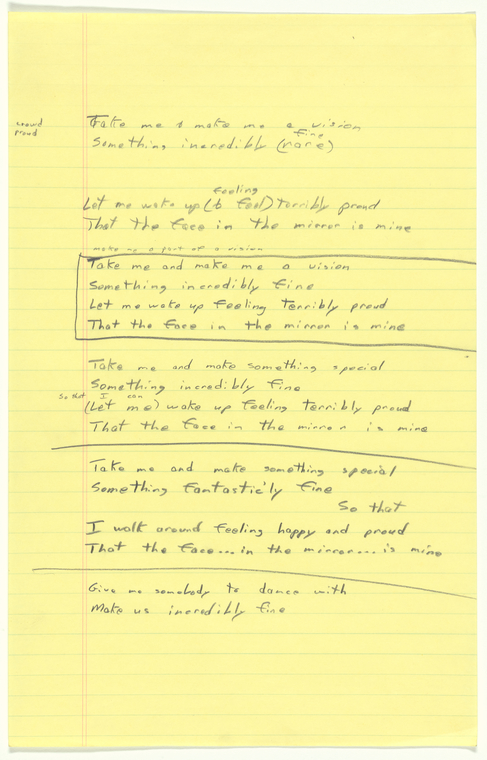 crowd
proud
Take me & make me a vision
fine
Something incredibly (rare)
feeling
Let me wake up (to feel) terribly proud
That the face in the mirror is mine
make me a part of a vision
Take me and make me a vision
Something incredibly fine
Let me wake up feeling terribly proud
That the face in the mirror is mine
Take me and make something special
Something incredibly fine
So that I can
(Let me) wake up feeling terribly proud
That the face in the mirror is mine
Take me and make something special
Something fantastic'ly fine
So that
I walk around feeling happy and proud
That the face... in the mirror... is mine
Give me somebody to dance with
Make us incredibly fine